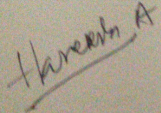 Hareesh A